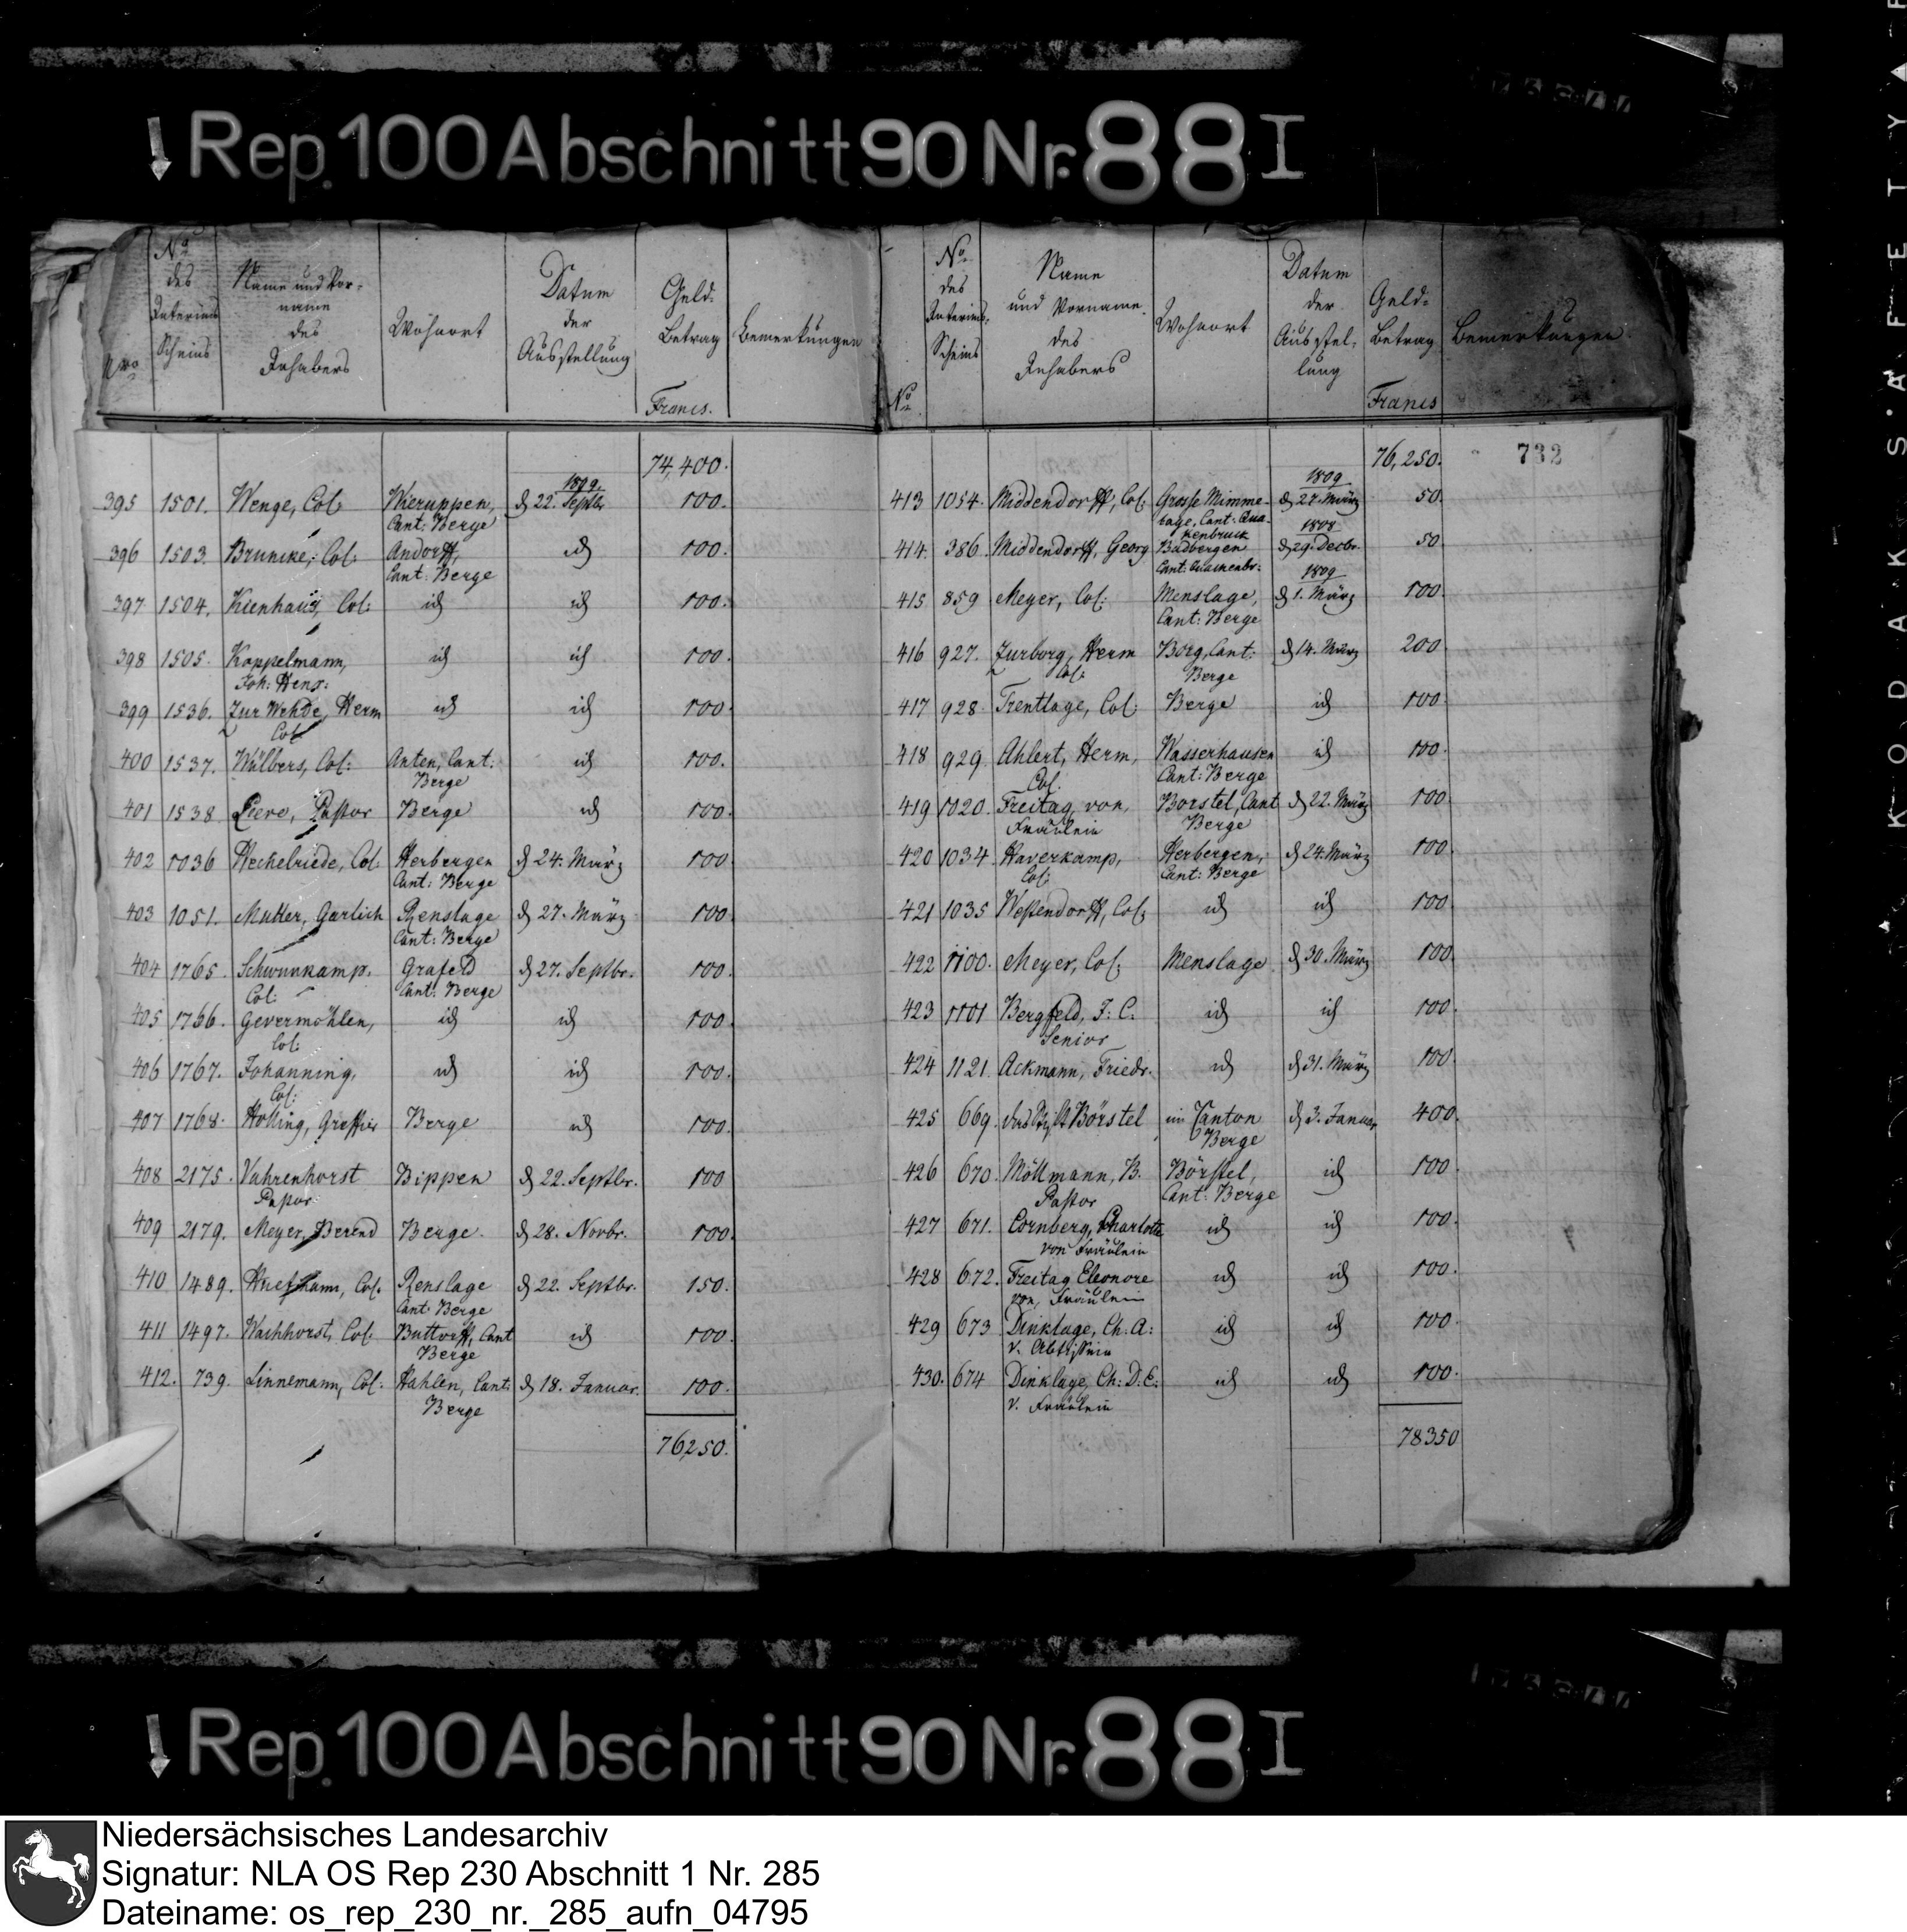 Rep. 100 Abschnitt 90 Nr. 88 I
Nro
No des Interims Scheins
Name und Vorname des Inhabers
Wohnort
Datum der Ausstellung
Geld-Betrag Francs.
Bemerkungen
74,400.
395 1501. Wenge, Col. Wieruppen, Cant: Berge 1809. d 22. Septbr 100.
396 1503. Brunike, Col. Andorff, Cant: Berge id 100.
397 1504. Kienhaus, Col: id id 100.
398 1505. Koppelmann, Joh: Henr: id id 100.
399 1536. Zur Wehde, Herm Col id id 100.
400 1537. Wülbers, Col: Anten, Cant: Berge id 100.
401 1538 Piere, Pastor Berge id 100.
402 1036 Heckelriede, Col. Herbergen Cant: Berge d 24. März 100.
403 1051. Mutter, Gerlich Renslage Cant: Berge d 27. März 100
404 1765. Schwunkamp. Col: Grafeld Cant: Berge d 27. Septbr. 100.
405 1766. Gevermöhlen, Col: id id 100.
406 1767. Johanning, Col: id id 100.
407 1768. Holling, Greffier Berge id 100.
408 2175. Vahrenhorst Pastor Bippen d 22. Septbr. 100
409 2179. Meyer, Berend Berge. d 28. Novbr. 100.
410 1489. Col. Renslage Cant: Berge d 22. Septbr. 150.
411 1497. Wachhorst, Col. Buttorff, Cant Berge id 100.
412. 739. Linnemann, Col: Hahlen, Cant: Berge d 18. Januar. 100.
76,250.
No
No des Interims-Scheins
Name und Vorname des Inhabers
Wohnort
Datum der Ausstellung
Geld-Betrag Francs
Bemerkungen.
732
76,250.
413 1054. Middendorff, Col. Grosse Mimmelage, Cant: Quakenbruck 1809 d 27. März 50.
414 386. Middendorff, Georg Badbergen Cant: Quakenbr: 1808 d 29. Decbr. 50
415 859 Meyer, Col: Menslage, Cant: Berge 1809 d 1. März 100.
416 927. Zurborg, Herm Col: Borg, Cant: Berge d 14. März 200
417 928. Trentlage, Col. Berge id 100.
418 929. Ahlert, Herm, Col. Wasserhausen Cant: Berge id 100.
419 1020. Freitag, von, Fräulein Borstel, Cant Berge d 22. März 100.
420 1034. Haverkamp, Col: Herbergen, Cant: Berge d 24. März 100.
421 1035 Westendorff, Col: id id 100.
422 1100. Meyer, Col: Menslage d 30. März 100.
423 1101 Bergfeld, F: C. Senior id id 100.
424 1121. Ackmann, Friedr. id d 31. März 100
425 669. das Stift Börstel im Canton Berge d 3. Januar 400.
426 670. Möllmann, B. Pastor Börstel, Cant: Berge id 100.
427 671. Cornberg, Charlotte von Fräulein id id 100.
428 672. Freitag Eleonore von, Fräulein id id 100.
429 673 Dinklage, Ch. A: v. Abtissin id id 100.
430. 674 Dinklage, Ch: D: E: v. Fräulein id id 100.
78350
Rep. 100 Abschnitt 90 Nr. 88 I
KODAK SAFETY
Niedersächsisches Landesarchiv
Signatur: NLA OS Rep 230 Abschnitt 1 Nr. 285
Dateiname: os_rep_230_nr._285_aufn_04795